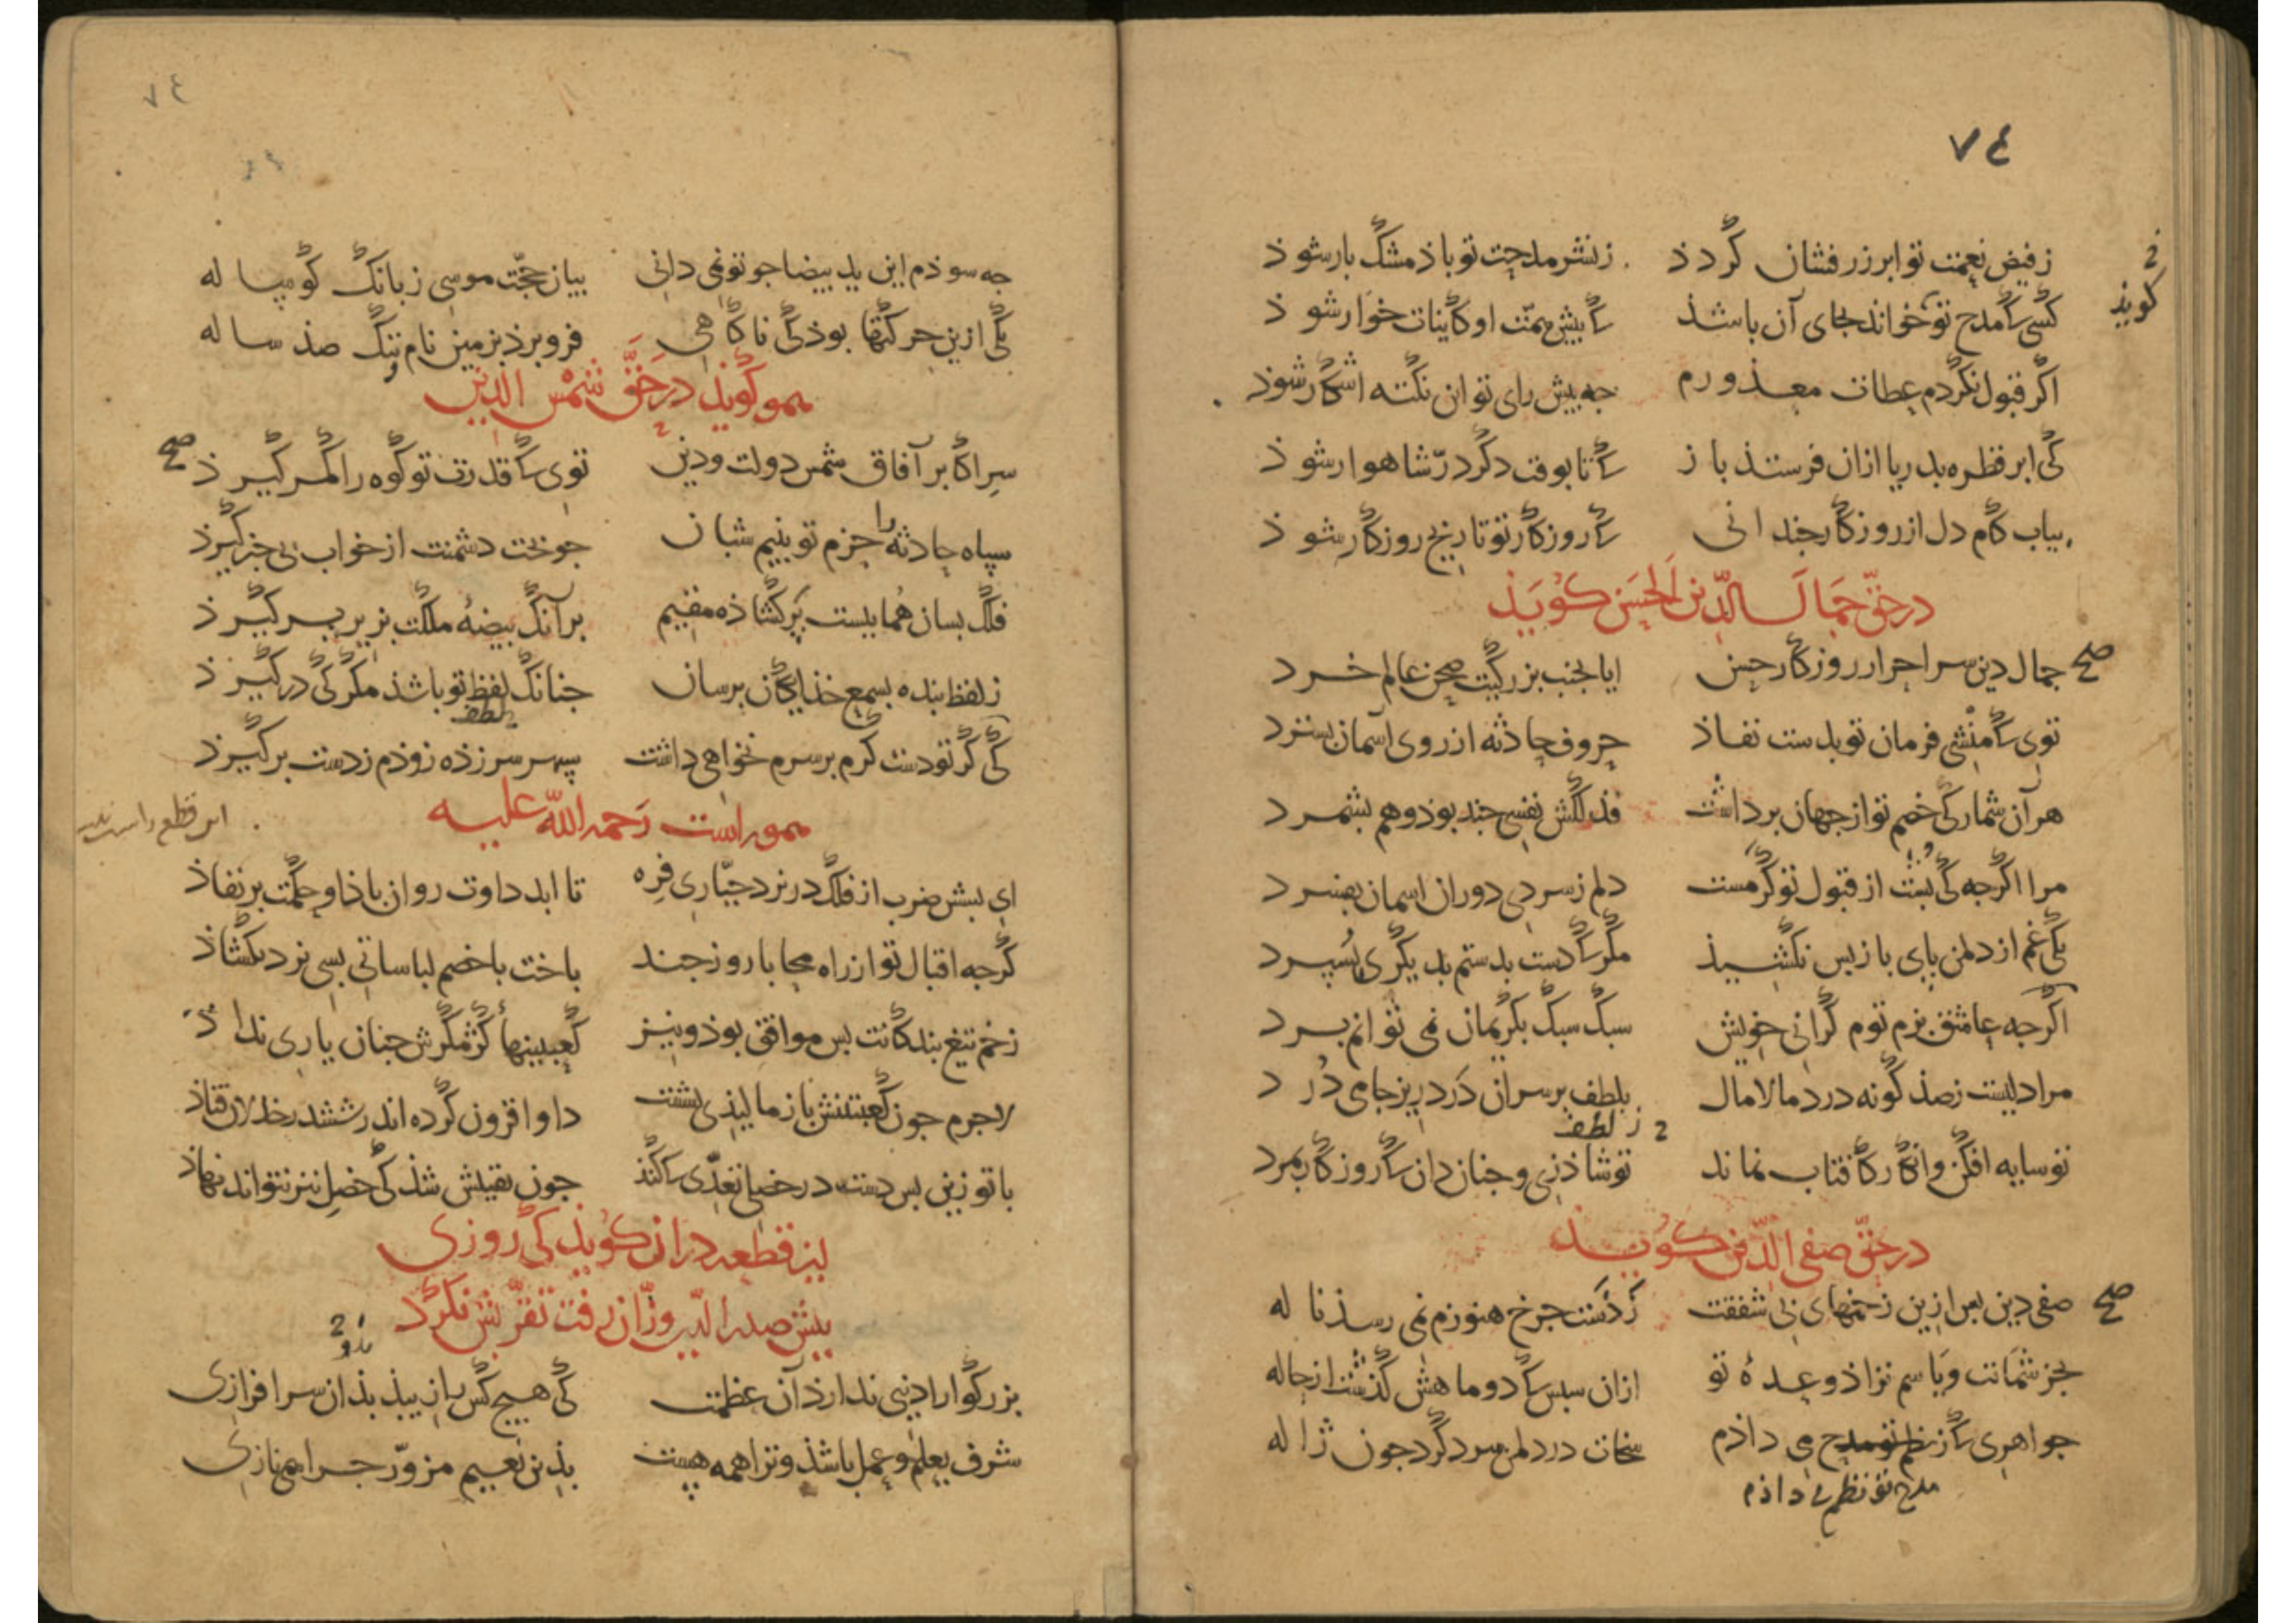 ٧٤
زفیض نعمت تو ابر زرفشان گردذ زنشر مدحت تو باذ مشک بار شوذ
2 گویذ
کسی کأ مدح تو خواند بجای آن باشذ کأ پیش همّت او کاینات خوار شوذ
اکر قبول نکردم عطات معذورم جه پیش رای تو ان نکته اشکار شوذ
کی ابر قطره بدریا ازان فرستذ باز کأ تا بوقت دکر درّ شاهوار شوذ
بیاب کام دل از روزکار جندانی کأ روزکار تو تاریخ روزکار شوذ
در حقّ جمال الدّین الحسن کویذ
صح جمال دین سر احرار روزکار حسن ایا بجنب بزرکیت صحن عالم خرد
توی کأ منشی فرمان تو بدست نفاذ حروف حادثه از روی آسمان بسترد
هر آن شمار کی خصم تو از جهان برداشت فذلکش نفسی جند بوذ وهم بشمرد
مرا اکرجه کی پشت از قبول تو کرمست دلم ز سردی دوران اسمان بفسرد
کی غم از دل من پای باز پس نکشیذ مکر کأ دست بدستم بدیکری بسپرد
اکرجه عاشق بزم توم کرانی خویش سبک سبک بکریمان نمی توانم برد
مرا دلیست ز صذ کونه درد مالامال بلطف بر سر ان درد ریز جامی درد
2 ز لطف
تو سایه افکن وانکار کافتاب نماند تو شاذ زی و جنان دان کأ روزکار بمرد
در حقّ صفی الدّین کویذ
صح صفی دین پس ازین زخمهای بی شفقت ز دست جرخ هنوزم نمی رسذ ناله
بجز شماتت ویا سم نزاذ وعده تو ازان سپس کأ دو ماهش کذشت از حاله
جواهری کأ ز نظم تو مدح می داذم سخات در دل من سرد کرد جون ژاله
مدح تو نظم می داذم
٧٤
جه سوذم این ید بیضا جو تو نمی دانی بیان حجّت موسی ز بانک کوساله
یکی ازین حرکتها بوذ کی ناکاهی فرو برذ بزمین نام وننک صذ ساله
همو کویذ در حقّ شمس الدین
سر اکابر آفاق شمس دولت ودین توی کأ قدرت تو کوه را کمر کیرذ صح
سپاه حادثه را حزم تو ببیم شبان جو بخت دشمنت از خواب بی خبر کیرذ
فلک بسان همایست پر کشاذه مقیم برآنک بیضهٔ ملکت بزیر پر کیرذ
ز لفظ بنده بسمع خذایکان برسان جنانک لفظ تو باشذ مکر کی درکیرذ
بلطف
کی کر تو دست کرم بر سرم نخواهی داشت سپهر سرزذه زوذم ز دست برکیرذ
همو راست رحمه الله علیه
ای بشش ضرب از فلک در نرد جبّاری فره تا ابد داوت روان باذا وحکمت بر نفاذ
کرجه اقبال تو از راه محابا روز جند باخت با خصم لباساتی بسی نرد بکشاذ
زخم تیغ بندکانت بس موافق بوذ ونیز کعبینها کژ مکرش جنان یاری نداذ
لاجرم جون کعبتینش باز مالیذی بشست داو افزون کرده اندر ششدر خذلان فتاذ
با تو زین پس دست در خصلی تعدّی کأ کنذ جون یقینش شذ کی خصل نیز نتواند نهاذ
این قطعه در ان کویذ کی روزی
پیش صدر الدّین وزّان رفت تقرّبش نکرد
2 باو
بزرکوارا دنیی ندارذ آن عظمت کی هیج کس را زیبذ بذان سرافرازی
شرف بعلم وعمل باشذ وترا همه هست بذین نعیم مزوّر جرا همی نازی